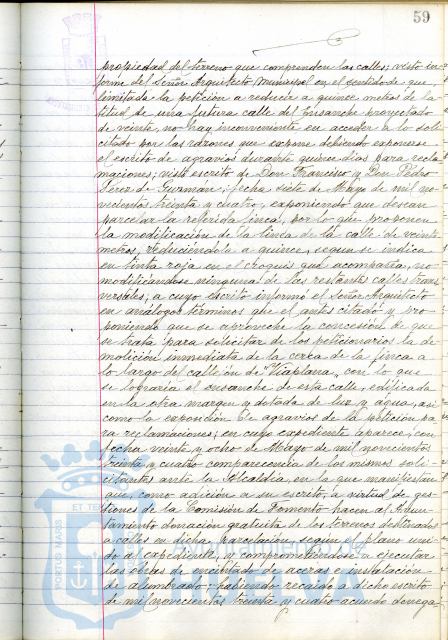 59
propiedad del terreno que comprenden las calles; visto in-
forme del Señor Arquitecto Municipal en el sentido de que
limitada la petición a reducir a quince metros de la
titud de una futura calle del Ensanche proyectado
de veinte, no hay inconveniente en acceder a lo soli
citado por las razones que expone debiendo exponerse
el escrito de agravios durante quince dias para recla
maciones; visto escrito de Don Francisco y Don Pedro
Pérez de Guzman, fecha siete de Mayo de mil no-
vecientos treinta y cuatro, exponiendo que desean
parcelar la referida finca, por lo que proponen
la modificación de la linea de la calle de veinte
metros, reduciéndola a quince, segun se indica
en tinta roja en el croquis que acompaña, no
modificándose ninguna de las restantes calles trans
versales; a cuyo escrito informó el Señor Arquitecto
en análogos términos que el antes citado y pro
poniendo que se aproveche la concesión de que
se trata para solicitar de los peticionarios la de
molición inmediata de la cerca de la finca a
lo largo del callejón de Viaplana, con lo que
se lograría el ensanche de esta calle, edificada
en la otra margen y dotada de luz y agua, asi
como la exposición de agravios de la petición pa
ra reclamaciones; en cuyo expediente aparece, con
fecha veinte y ocho de Mayo de mil novecientos
treinta y cuatro comparecencia de los mismos soli-
citantes ante la Alcaldia, en la que manifiestan
que, como adición a su escrito, a virtud de ges-
tiones de la Comisión de Fomento hacen al Ayun-
tamiento donación gratuita de los terrenos destinados
a calles en dicha parcelación, segun el plano uni-
do al expediente, y comprometiéndose a ejecutar
las obras de encintado de aceras e instalación
de alumbrado; habiendo recaido a dicho escrito
de mil novecientos treinta y cuatro acuerdo denega-